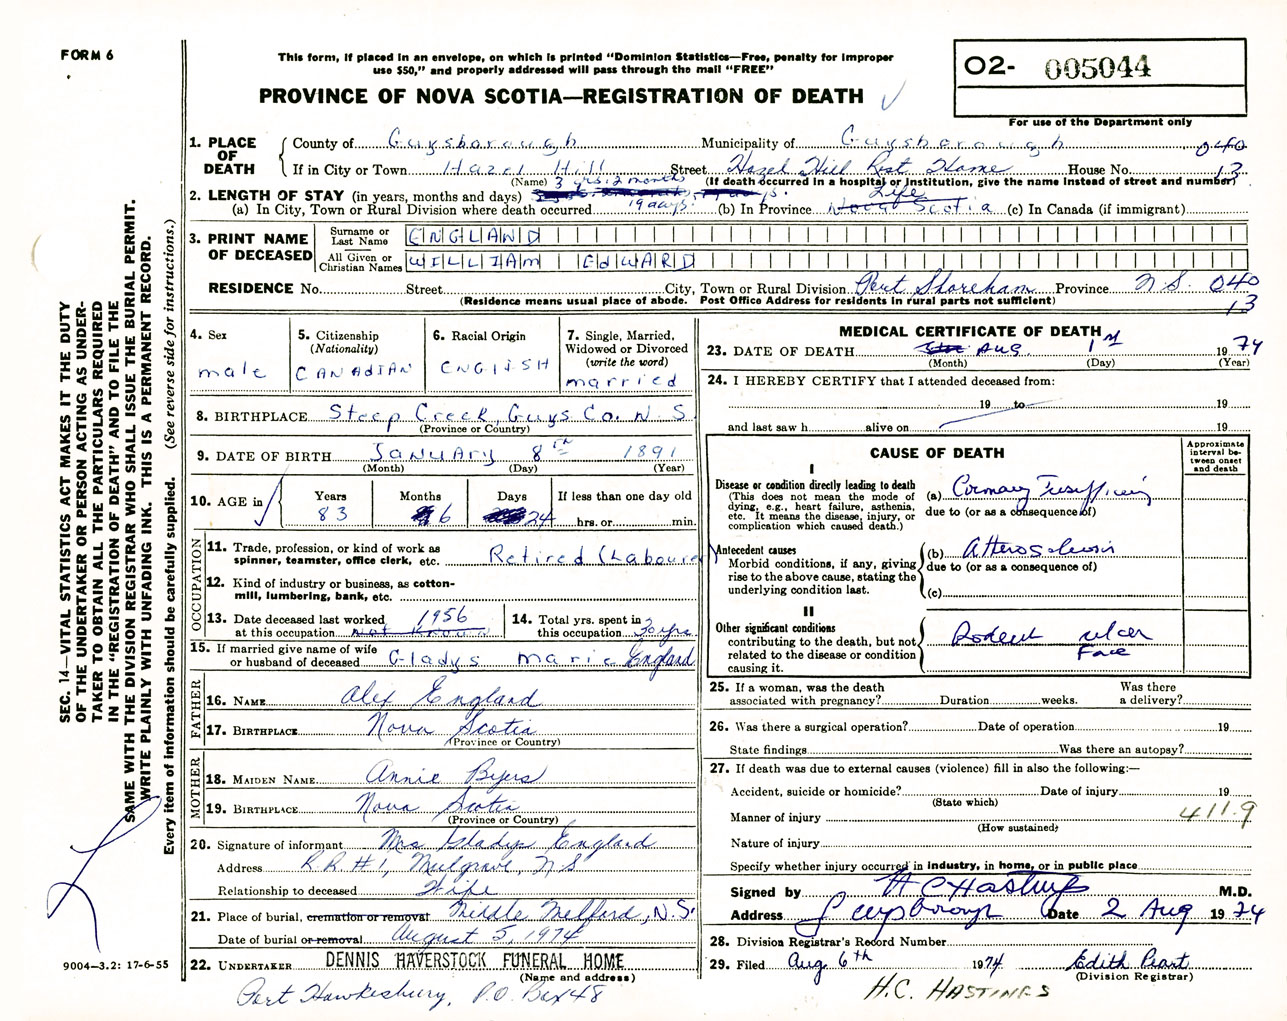 FORM 6
This form, if placed in an envelope, on which is printed "Dominion Statistics—Free, penalty for improper
use $50," and properly addressed will pass through the mail "FREE"
PROVINCE OF NOVA SCOTIA—REGISTRATION OF DEATH
O2- 005044
For use of the Department only
SEC. 14—VITAL STATISTICS ACT MAKES IT THE DUTY
OF THE UNDERTAKER OR PERSON ACTING AS UNDER-
TAKER TO OBTAIN ALL THE PARTICULARS REQUIRED
IN THE "REGISTRATION OF DEATH" AND TO FILE THE
SAME WITH THE DIVISION REGISTRAR WHO SHALL ISSUE THE BURIAL PERMIT.
WRITE PLAINLY WITH UNFADING INK. THIS IS A PERMANENT RECORD.
Every item of information should be carefully supplied. (See reverse side for instructions.)
1. PLACE OF DEATH County of Guysborough Municipality of Guysborough 040
If in City or Town Hazel Hill Street Hazel Hill Rest Home House No. 13
(Name) (If death occurred in a hospital or institution, give the name instead of street and number)
2. LENGTH OF STAY (in years, months and days) 3 yrs. 2 months 19 days. Life
(a) In City, Town or Rural Division where death occurred (b) In Province Nova Scotia (c) In Canada (if immigrant)
3. PRINT NAME OF DECEASED Surname or Last Name ENGLAND
All Given or Christian Names WILLIAM EdWARD
RESIDENCE No. Street City, Town or Rural Division Port Shoreham Province N.S. 040
(Residence means usual place of abode. Post Office Address for residents in rural parts not sufficient) 13
4. Sex male
5. Citizenship (Nationality) CANADIAN
6. Racial Origin ENGLISH
7. Single, Married, Widowed or Divorced (write the word) married
8. BIRTHPLACE Steep Creek, Guys Co. N.S.
(Province or Country)
9. DATE OF BIRTH January 8th 1891
(Month) (Day) (Year)
10. AGE in Years 83 Months 6 Days 24 If less than one day old hrs. or min.
OCCUPATION
11. Trade, profession, or kind of work as spinner, teamster, office clerk, etc. Retired (Labourer)
12. Kind of industry or business, as cotton-mill, lumbering, bank, etc.
13. Date deceased last worked at this occupation 1956 Not Known
14. Total yrs. spent in this occupation 30 yrs
15. If married give name of wife or husband of deceased Gladys Marie England
FATHER
16. NAME Alex England
17. BIRTHPLACE Nova Scotia
(Province or Country)
MOTHER
18. MAIDEN NAME Annie Byers
19. BIRTHPLACE Nova Scotia
(Province or Country)
20. Signature of informant Mrs Gladys England
Address R.R #1, Mulgrave, N S
Relationship to deceased Wife
21. Place of burial, cremation or removal Middle Melford, N.S.
Date of burial or removal August 5, 1974
22. UNDERTAKER DENNIS HAVERSTOCK FUNERAL HOME
(Name and address)
Port Hawkesbury, P.O. Box 48
9004-3.2: 17-6-55
MEDICAL CERTIFICATE OF DEATH
23. DATE OF DEATH Aug 1st 1974
(Month) (Day) (Year)
24. I HEREBY CERTIFY that I attended deceased from:
19 to 19
and last saw h alive on 19
CAUSE OF DEATH
Approximate interval between onset and death
I
Disease or condition directly leading to death
(This does not mean the mode of dying, e.g., heart failure, asthenia, etc. It means the disease, injury, or complication which caused death.)
(a) Coronary Insufficiency
due to (or as a consequence of)
Antecedent causes
Morbid conditions, if any, giving rise to the above cause, stating the underlying condition last.
(b) Atherosclerosis
due to (or as a consequence of)
(c)
II
Other significant conditions
contributing to the death, but not related to the disease or condition causing it.
Rodent ulcer
Face
25. If a woman, was the death associated with pregnancy? Duration weeks. Was there a delivery?
26. Was there a surgical operation? Date of operation 19
State findings Was there an autopsy?
27. If death was due to external causes (violence) fill in also the following:—
Accident, suicide or homicide? Date of injury 19
(State which)
Manner of injury 411.9
(How sustained)
Nature of injury
Specify whether injury occurred in industry, in home, or in public place
Signed by H C Hastings M.D.
Address Guysborough Date 2 Aug 1974
28. Division Registrar's Record Number
29. Filed Aug 6th 1974 Edith Peart
(Division Registrar)
H.C. HASTINGS